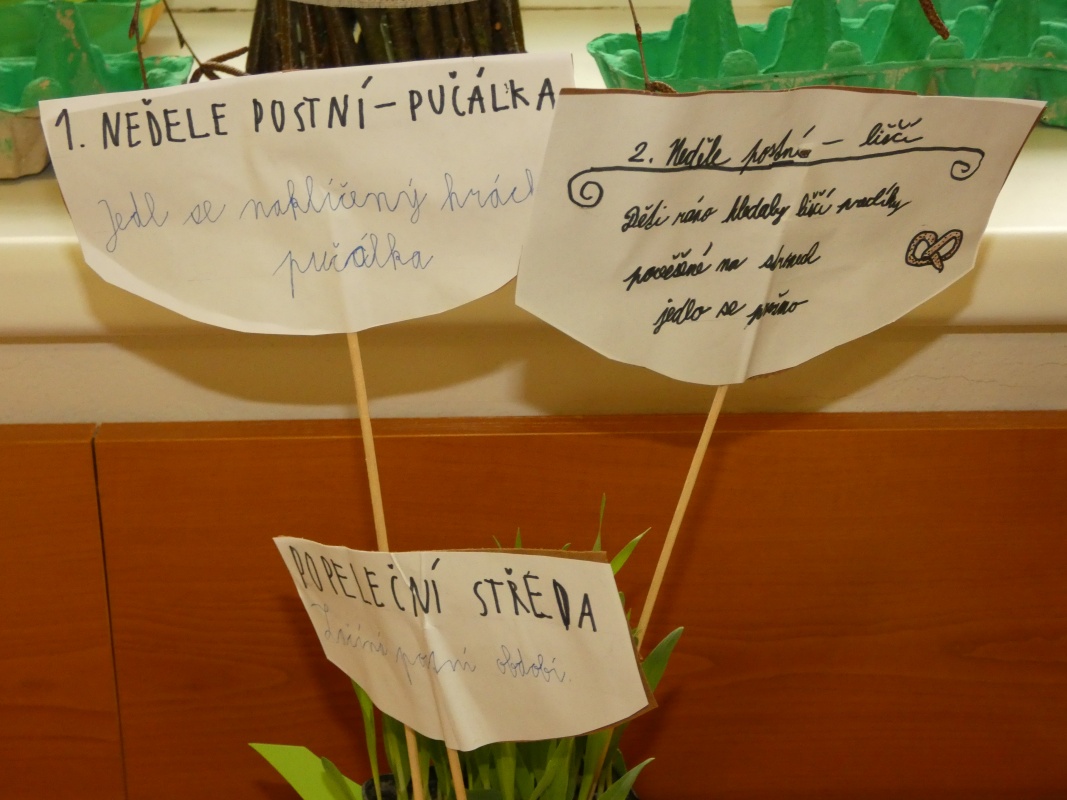 1. NEDĚLE POSTNÍ - PUČÁLKA
Jedl se naklíčený hrách
pučálka
2. Neděle postní - liščí
Děti ráno hledaly liščí preclíky
pověšené na
jedlo se
POPELEČNÍ STŘEDA
postní období.